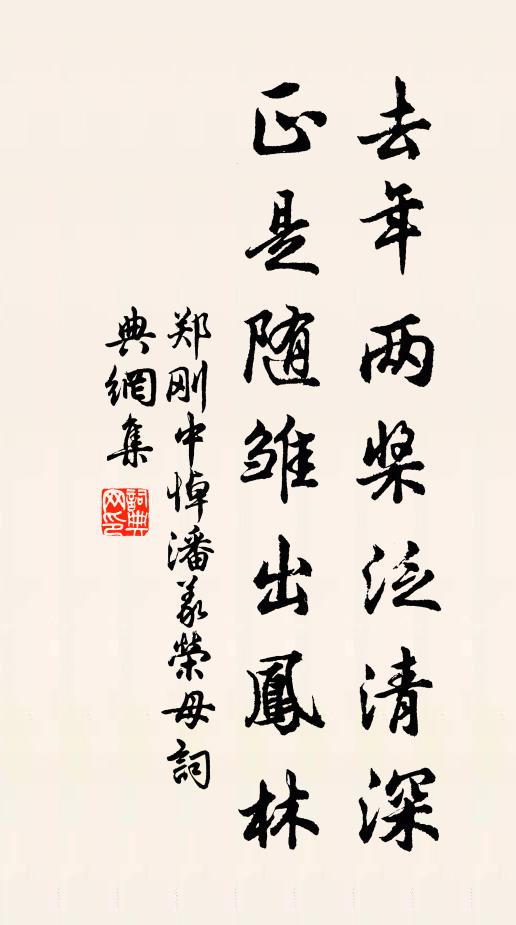 去年两桨泛清深
正是随雏出鳳林
郑刚中悼潘义荣母詞
典網集
詞典
网印